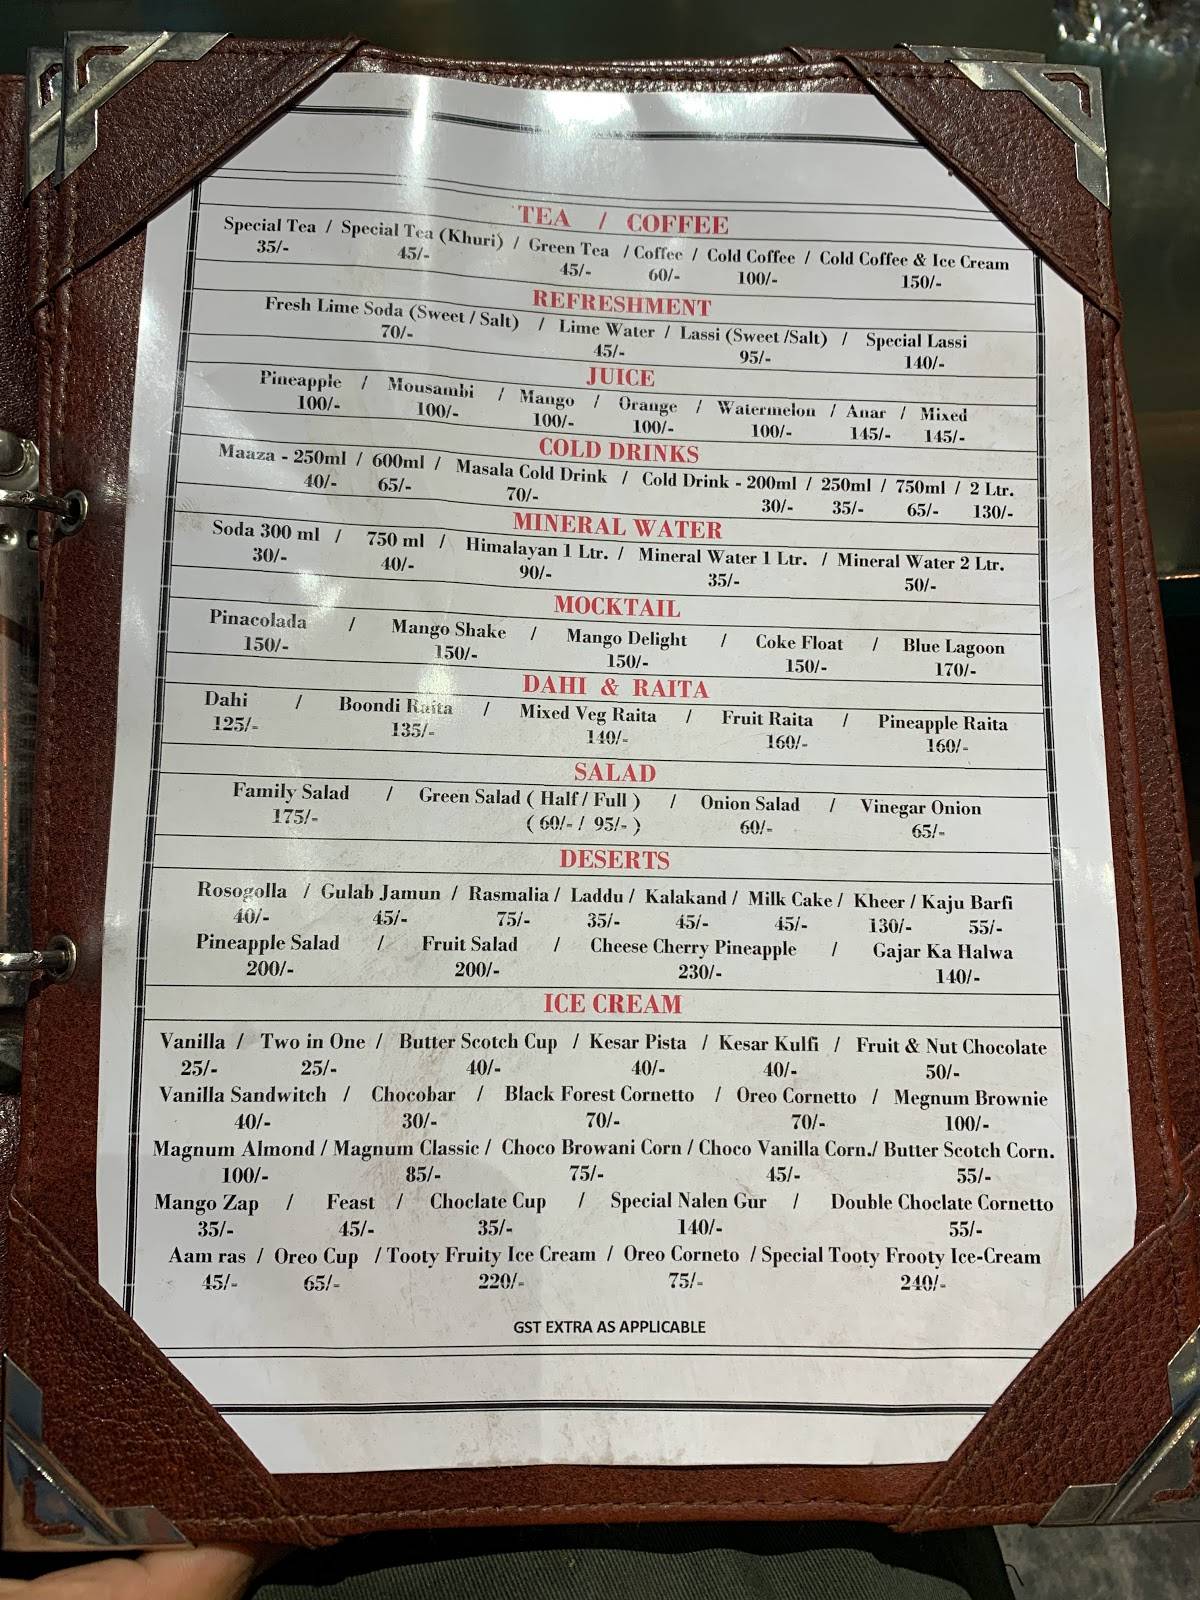 TEA / COFFEE
Special Tea / Special Tea (Khuri) / Green Tea / Coffee / Cold Coffee / Cold Coffee & Ice Cream
35/- 45/- 45/- 60/- 100/- 150/-
REFRESHMENT
Fresh Lime Soda (Sweet / Salt) / Lime Water / Lassi (Sweet /Salt) / Special Lassi
70/- 45/- 95/- 140/-
JUICE
Pineapple / Mousambi / Mango / Orange / Watermelon / Anar / Mixed
100/- 100/- 100/- 100/- 100/- 145/- 145/-
COLD DRINKS
Maaza - 250ml / 600ml / Masala Cold Drink / Cold Drink - 200ml / 250ml / 750ml / 2 Ltr.
40/- 65/- 70/- 30/- 35/- 65/- 130/-
MINERAL WATER
Soda 300 ml / 750 ml / Himalayan 1 Ltr. / Mineral Water 1 Ltr. / Mineral Water 2 Ltr.
30/- 40/- 90/- 35/- 50/-
MOCKTAIL
Pinacolada / Mango Shake / Mango Delight / Coke Float / Blue Lagoon
150/- 150/- 150/- 150/- 170/-
DAHI & RAITA
Dahi / Boondi Raita / Mixed Veg Raita / Fruit Raita / Pineapple Raita
125/- 135/- 140/- 160/- 160/-
SALAD
Family Salad / Green Salad ( Half / Full ) / Onion Salad / Vinegar Onion
175/- ( 60/- / 95/- ) 60/- 65/-
DESERTS
Rosogolla / Gulab Jamun / Rasmalia / Laddu / Kalakand / Milk Cake / Kheer / Kaju Barfi
40/- 45/- 75/- 35/- 45/- 45/- 130/- 55/-
Pineapple Salad / Fruit Salad / Cheese Cherry Pineapple / Gajar Ka Halwa
200/- 200/- 230/- 140/-
ICE CREAM
Vanilla / Two in One / Butter Scotch Cup / Kesar Pista / Kesar Kulfi / Fruit & Nut Chocolate
25/- 25/- 40/- 40/- 40/- 50/-
Vanilla Sandwitch / Chocobar / Black Forest Cornetto / Oreo Cornetto / Megnum Brownie
40/- 30/- 70/- 70/- 100/-
Magnum Almond / Magnum Classic / Choco Browani Corn / Choco Vanilla Corn./ Butter Scotch Corn.
100/- 85/- 75/- 45/- 55/-
Mango Zap / Feast / Choclate Cup / Special Nalen Gur / Double Choclate Cornetto
35/- 45/- 35/- 140/- 55/-
Aam ras / Oreo Cup / Tooty Fruity Ice Cream / Oreo Corneto / Special Tooty Frooty Ice-Cream
45/- 65/- 220/- 75/- 240/-
GST EXTRA AS APPLICABLE